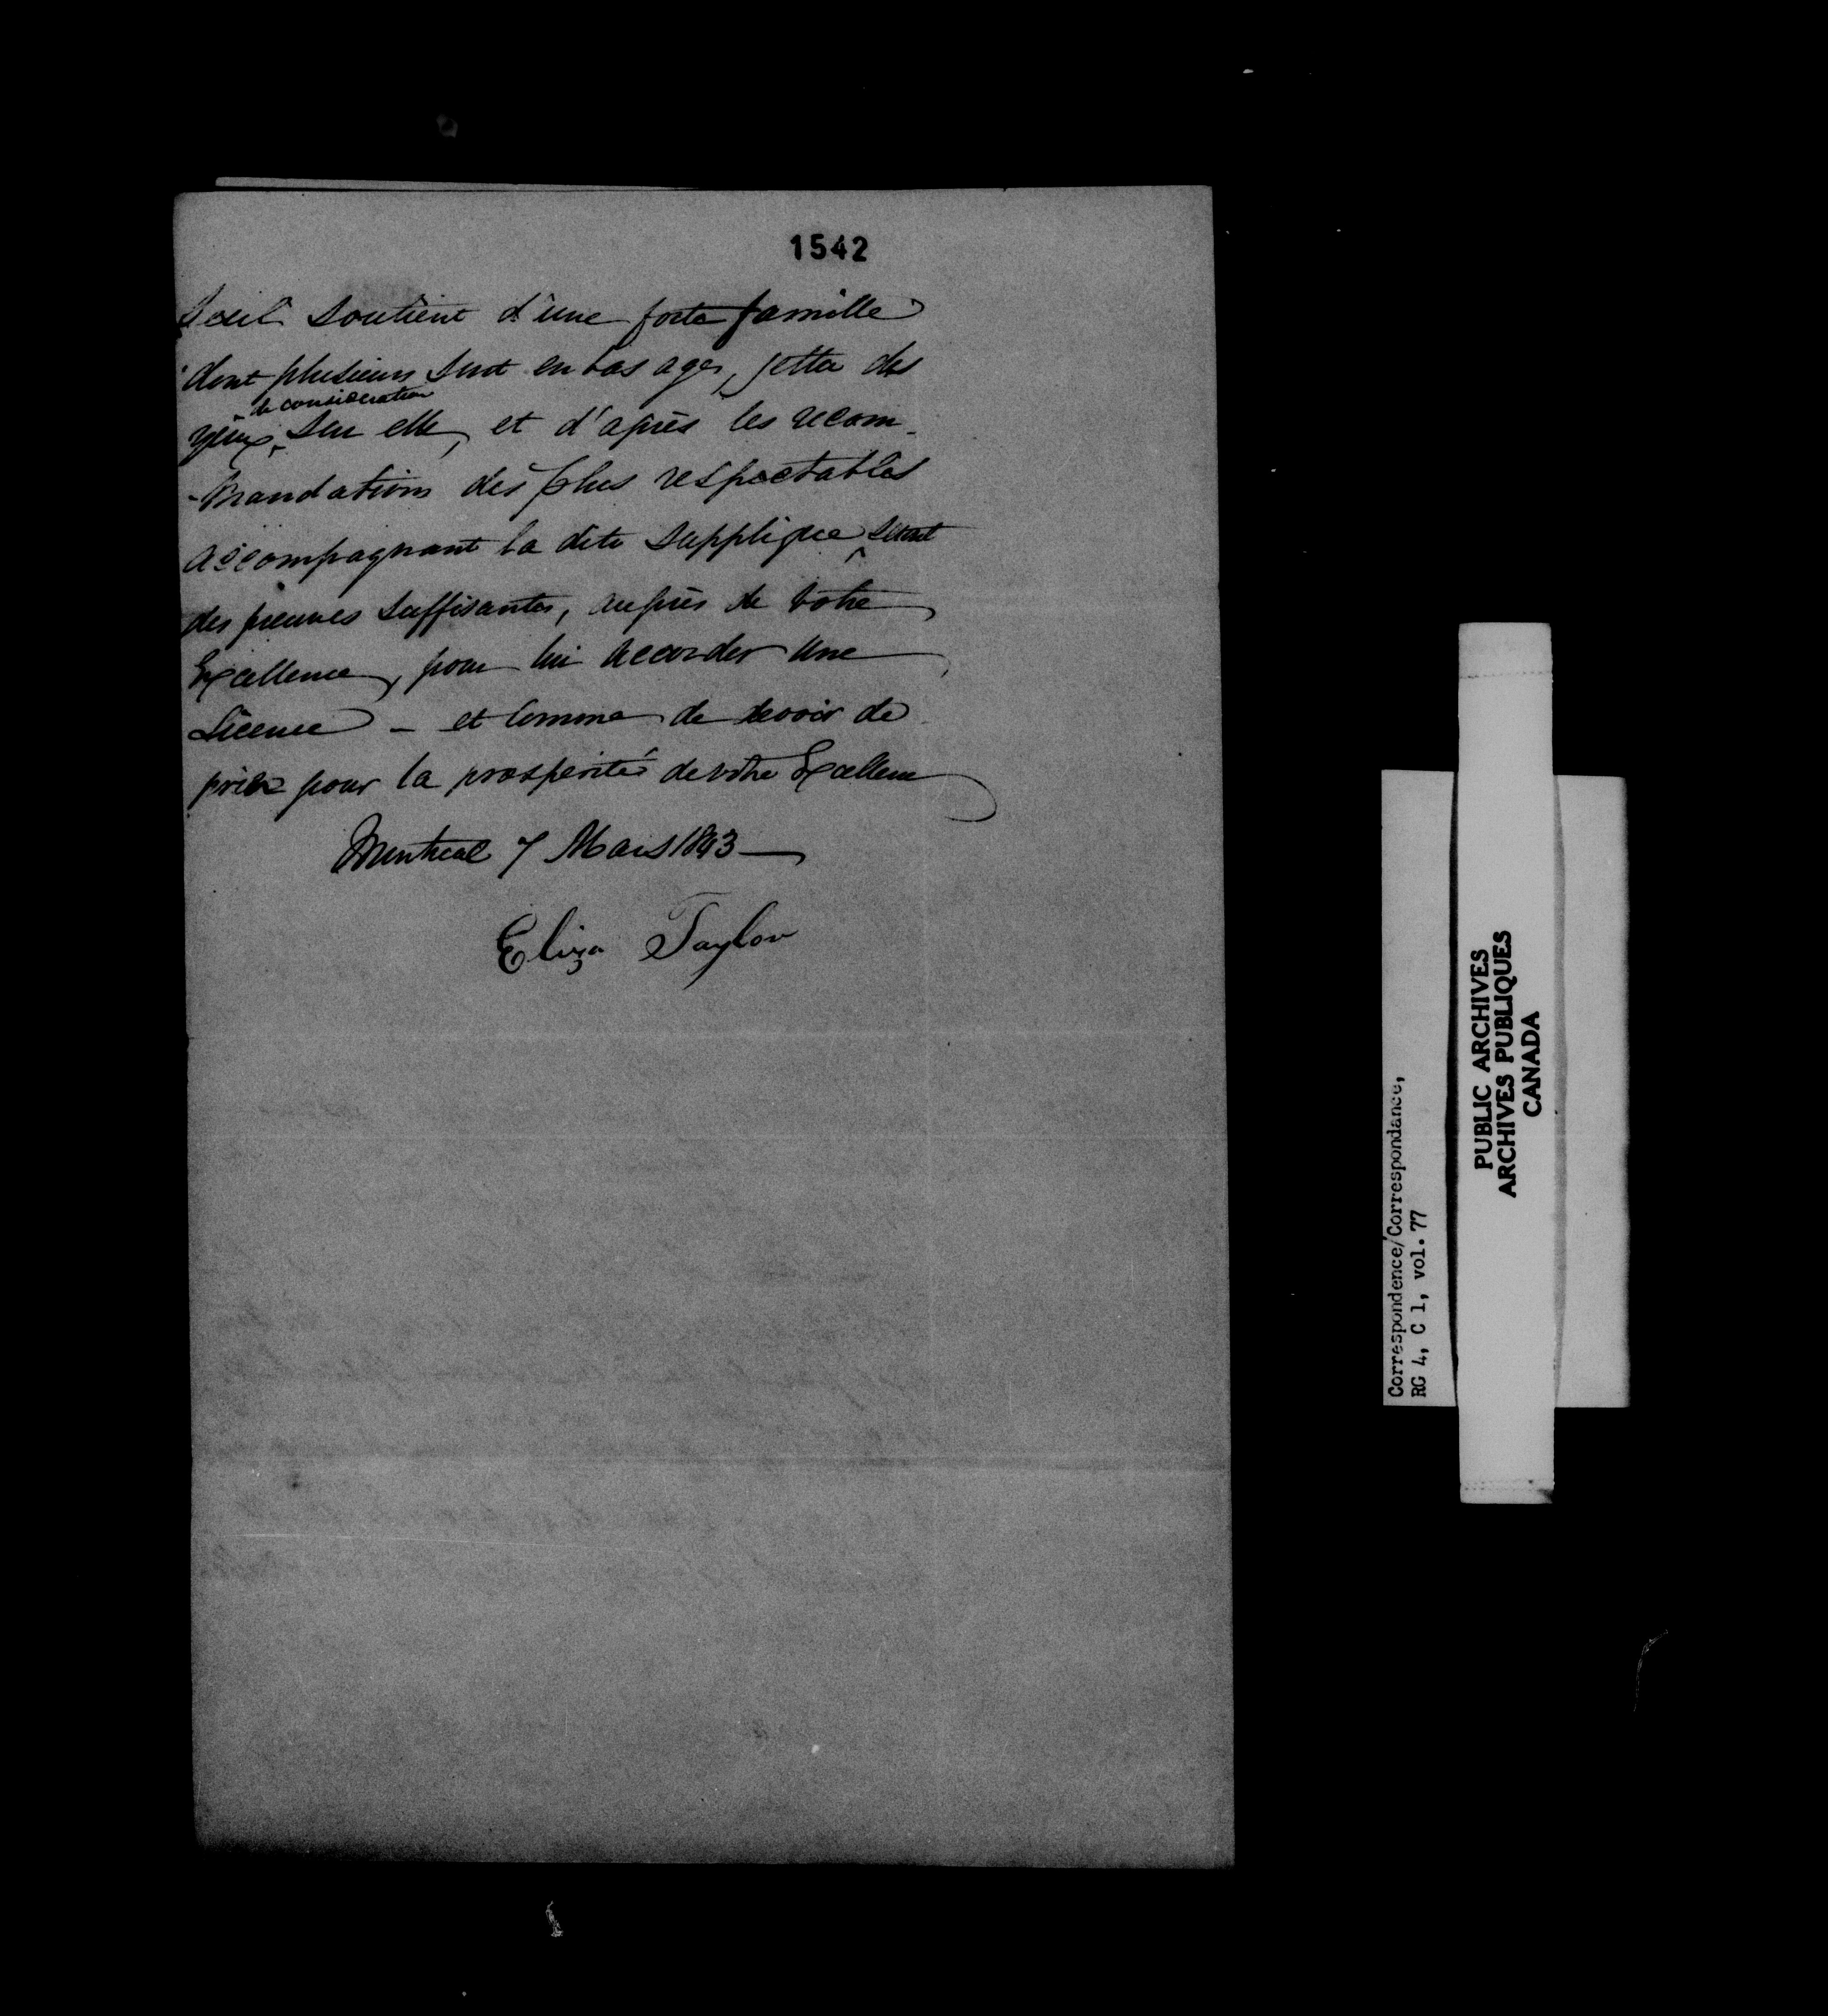 1542
Seul soutient d'une forte famille
dont plusieurs sont en bas age, jetter des
de consideration
yeux sur elle, et d'après les recom-
-mandations des plus respectables
accompagnant la dite supplique seront
des preuves suffisantes, auprès de votre
Excellence, pour lui accorder une
Licence - et comme de devoir de
prier pour la prosperité de votre Excellence
Montreal 7 Mars 1843
Eliza Taylor
Correspondence/Correspondance,
RG 4, C 1, vol. 77
PUBLIC ARCHIVES
ARCHIVES PUBLIQUES
CANADA